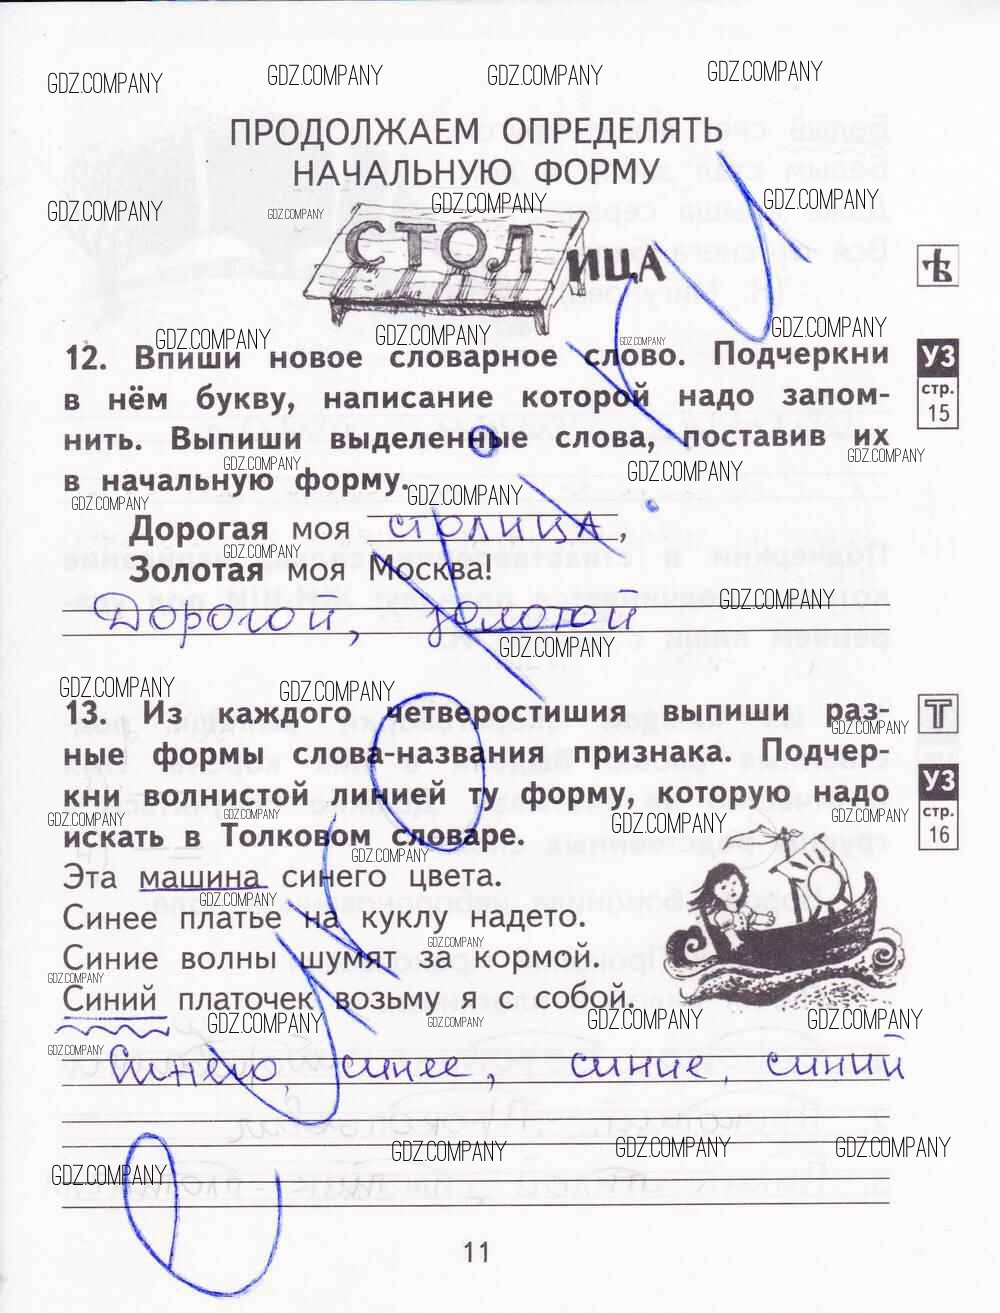 GDZ.COMPANY GDZ.COMPANY GDZ.COMPANY GDZ.COMPANY
ПРОДОЛЖАЕМ ОПРЕДЕЛЯТЬ
НАЧАЛЬНУЮ ФОРМУ
GDZ.COMPANY GDZ.COMPANY GDZ.COMPANY GDZ.COMPANY
СТОЛ ИЦА
GDZ.COMPANY GDZ.COMPANY GDZ.COMPANY GDZ.COMPANY
12. Впиши новое словарное слово. Подчеркни
в нём букву, написание которой надо запом-
нить. Выпиши выделенные слова, поставив их
в начальную форму.
УЗ
стр.
15
GDZ.COMPANY GDZ.COMPANY GDZ.COMPANY
GDZ.COMPANY GDZ.COMPANY
Дорогая моя столица,
GDZ.COMPANY
Золотая моя Москва!
GDZ.COMPANY
Дорогой, золотой
GDZ.COMPANY
GDZ.COMPANY GDZ.COMPANY
13. Из каждого четверостишия выпиши раз-
ные формы слова-названия признака. Подчер-
кни волнистой линией ту форму, которую надо
искать в Толковом словаре.
Т
GDZ.COMPANY
УЗ
стр.
16
GDZ.COMPANY GDZ.COMPANY GDZ.COMPANY GDZ.COMPANY
GDZ.COMPANY
Эта машина синего цвета.
GDZ.COMPANY
Синее платье на куклу надето.
GDZ.COMPANY
Синие волны шумят за кормой.
GDZ.COMPANY
Синий платочек возьму я с собой.
GDZ.COMPANY GDZ.COMPANY GDZ.COMPANY GDZ.COMPANY
GDZ.COMPANY
Синего, синее, синие, синий
GDZ.COMPANY GDZ.COMPANY GDZ.COMPANY
GDZ.COMPANY
11